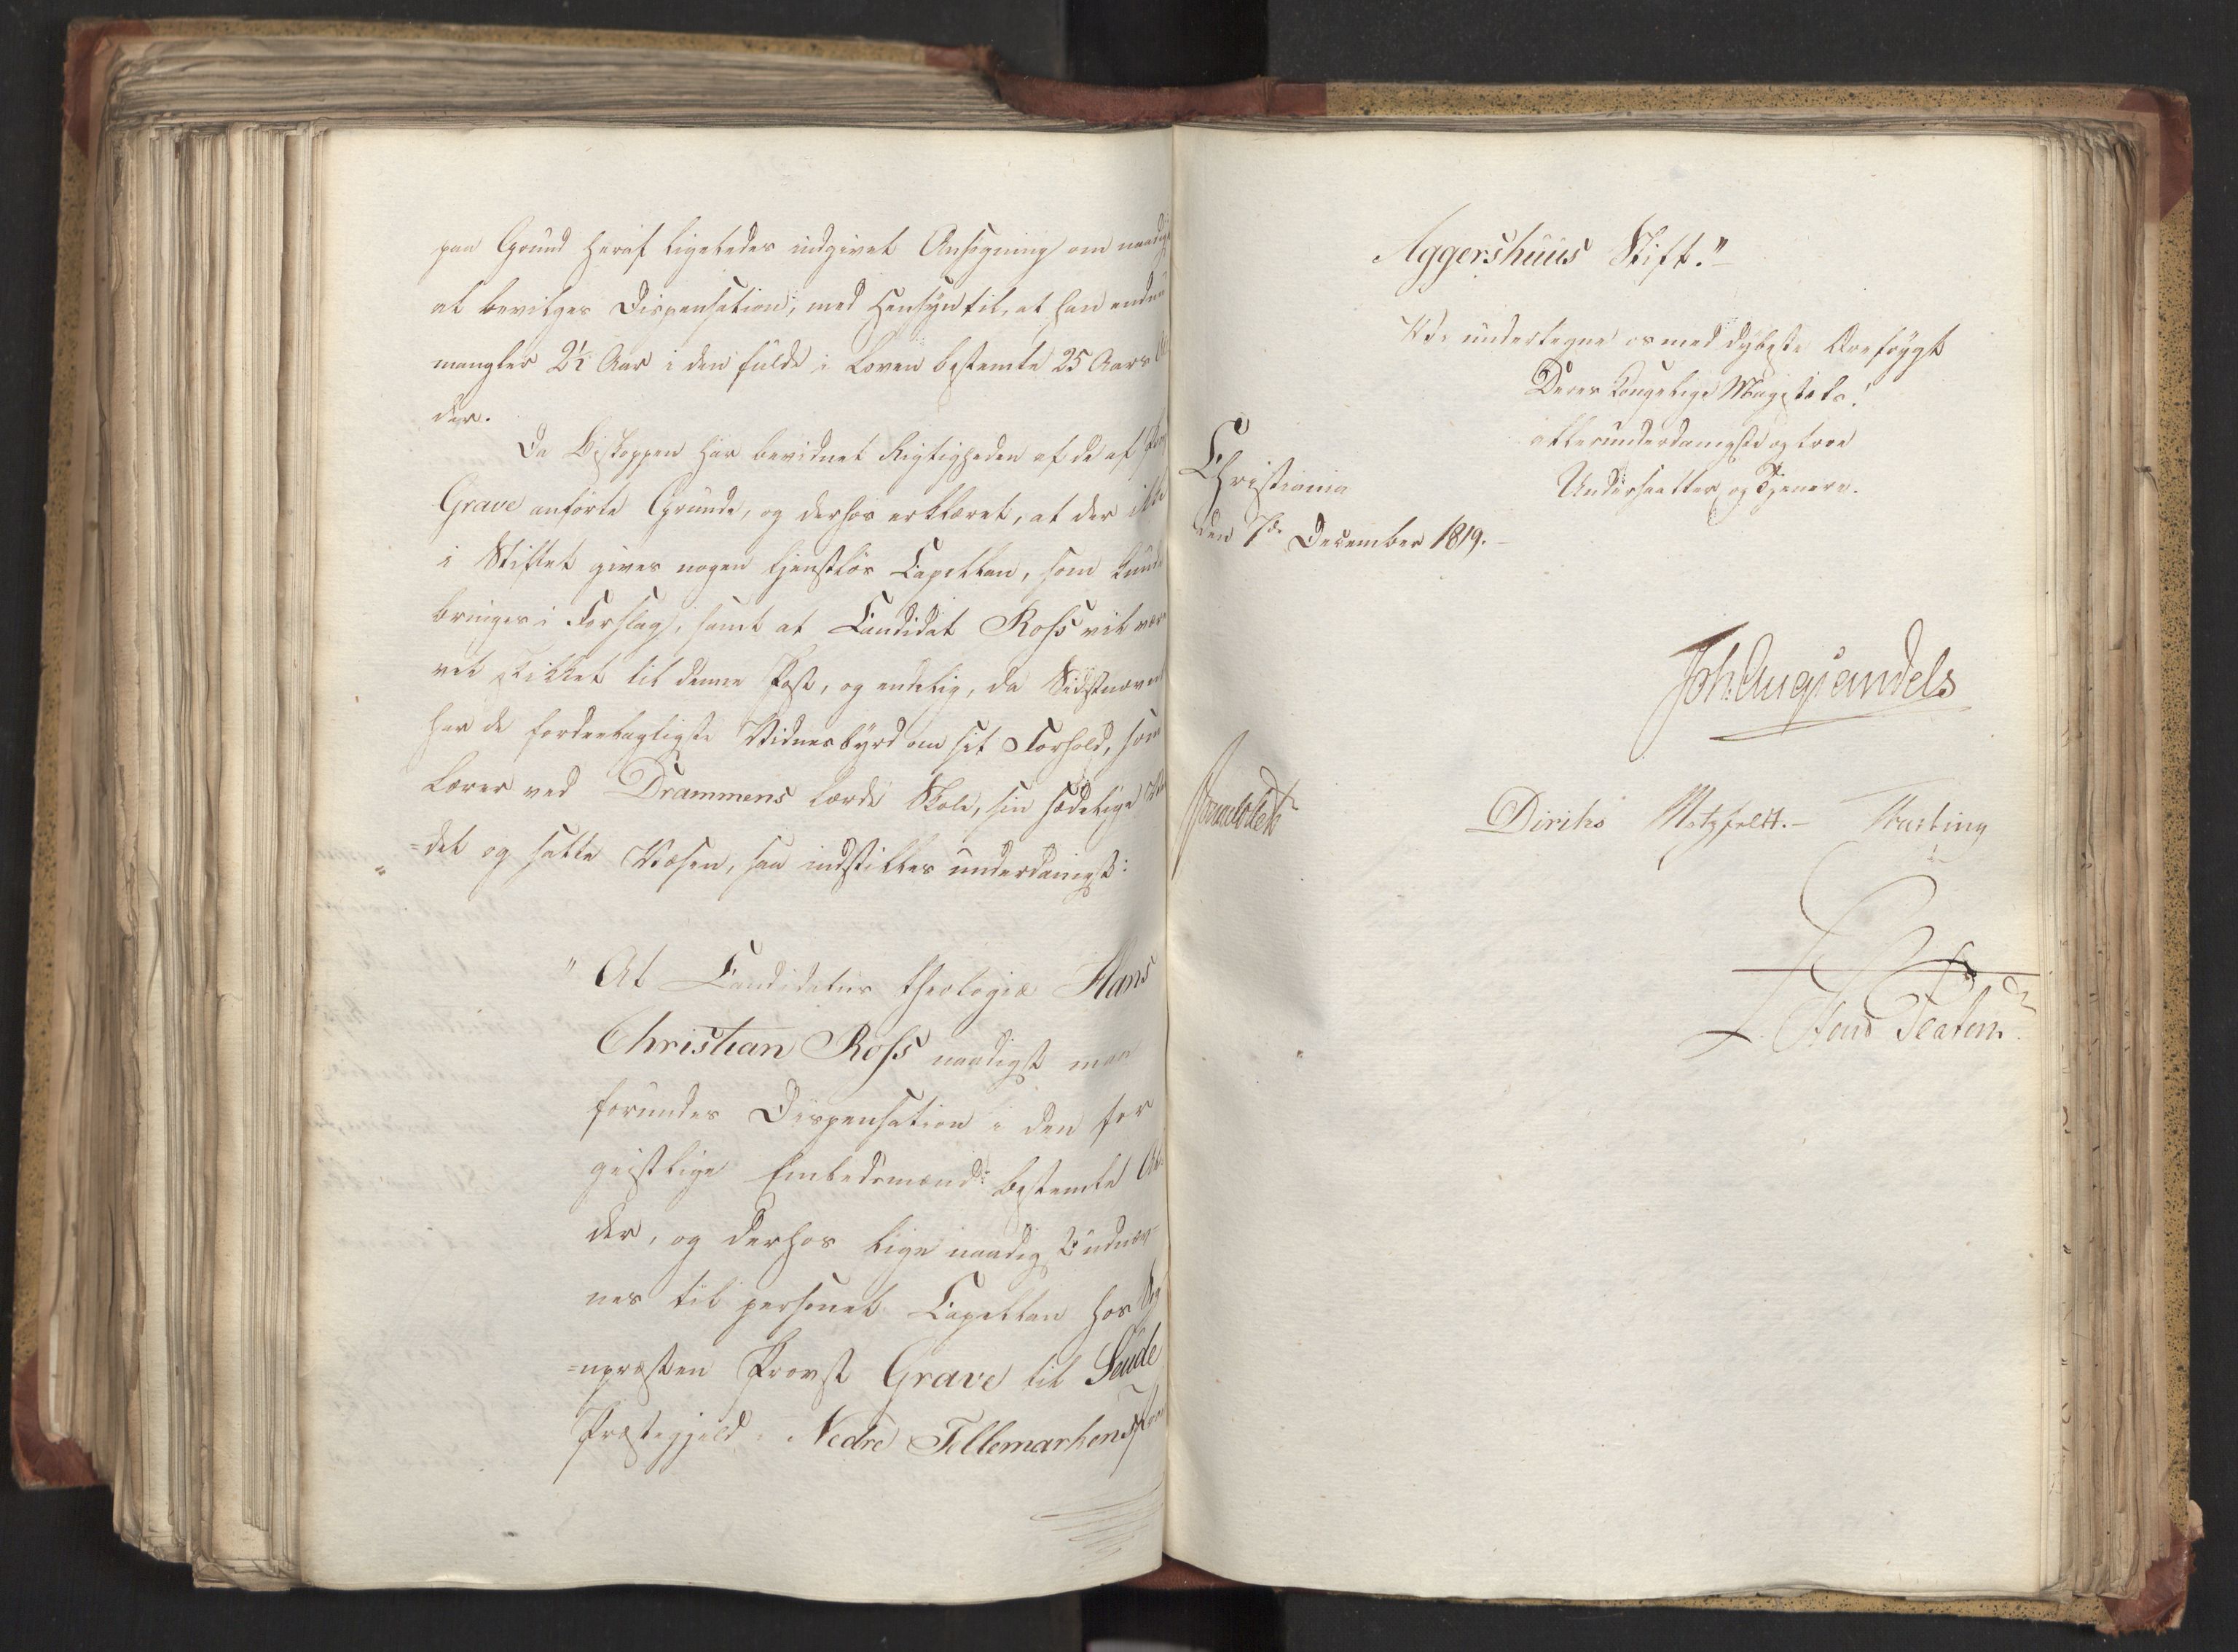 paa Grund heraf ligeledes indgivet Ansøgning om naadigst
at bevilges Dispensation, med Hensyn til, at han endnu
mangler 2½ Aar i den fulde i Loven bestemte 25 Aars Al
der.
Da Biskoppen har bevidnet Rigtigheden af de af Provst
Grave anførte Grunde, og derhos erklæret, at der ikke
i Stiftet gives nogen tjenstløs Capellan, som kunde
bringes i Forslag, samt at Candidat Ross vil være
vel skikket til denne Post, og endelig, da Sidstnævnte
har de fordeelagtigste Vidnesbyrd om sit Forhold, som
Lærer ved Drammens lærde Skole, sin sædelige Van
=del og satte Væsen, saa indstilles underdanigst:
"At Candidatus theologiæ Hans
Christian Ross naadigst maa
forundes Dispensation i den for
geistlige Embedsmænd bestemte Al-
der, og derhos lige naadigst udnæv-
nes til personel Capellan hos Sog
=nepræsten Provst Grave til Soude
Præstegjeld i Nedre Tellemarkens Provstie
Aggershuus Stift."
Vi undertegne os med dybeste Ærefrygt
Deres Kongelige Majestets!
allerunderdanigste og troe
Undersaatter og Tjenere.
Christiania
den 7de December 1819.
Joh. Aug. Sandels
Diriks Motzfeldt. Fasting